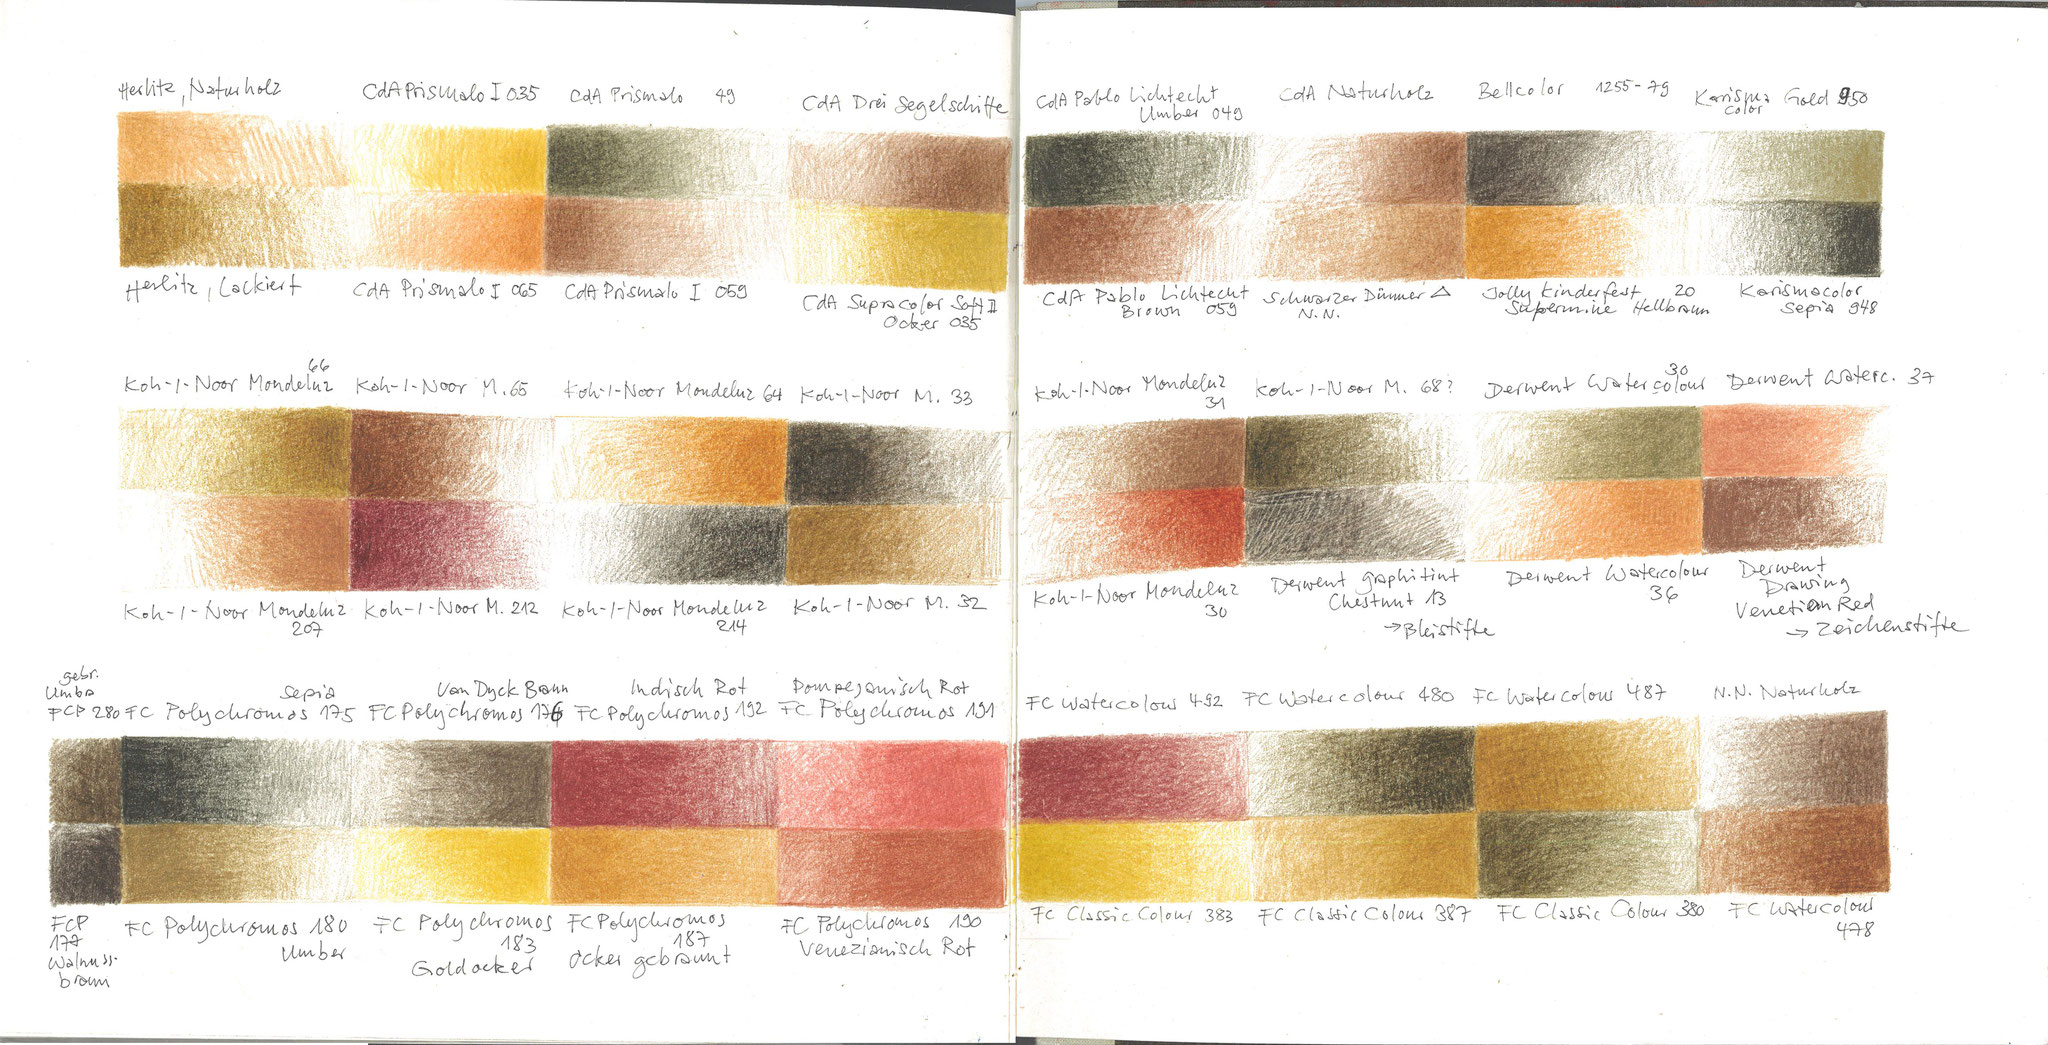 Herlitz, Naturholz
CdA Prismalo I 035
CdA Prismalo 49
CdA Drei Segelschiffe
Herlitz, Lackiert
CdA Prismalo I 065
CdA Prismalo I 059
CdA Supracolor Soft II
Ocker 035
Koh-I-Noor Mondeluz
66
Koh-I-Noor M. 65
Koh-I-Noor Mondeluz 64
Koh-I-Noor M. 33
Koh-I-Noor Mondeluz
207
Koh-I-Noor M. 212
Koh-I-Noor Mondeluz
214
Koh-I-Noor M. 32
gebr.
Umbra
FCP 280
Sepia
FC Polychromos 175
Van Dyck Braun
FC Polychromos 176
Indisch Rot
FC Polychromos 192
Pompejanisch Rot
FC Polychromos 191
FCP
177
Walnuss-
braun
FC Polychromos 180
Umber
FC Polychromos
183
Goldocker
FC Polychromos
187
Ocker gebrannt
FC Polychromos 190
Venezianisch Rot
CdA Pablo Lichtecht
Umber 049
CdA Naturholz
Bellcolor 1255-79
Karisma Gold 950
color
CdA Pablo Lichtecht
Brown 059
Schwarzer Dünner △
N.N.
Jolly Kinderfest 20
Supermine Hellbraun
Karismacolor
Sepia 948
Koh-I-Noor Mondeluz
31
Koh-I-Noor M. 68?
Derwent Watercolour
30
Derwent Waterc. 37
Koh-I-Noor Mondeluz
30
Derwent graphitint
Chestnut 13
→ Bleistifte
Derwent Watercolour
36
Derwent
Drawing
Venetian Red
→ Zeichenstifte
FC Watercolour 492
FC Watercolour 480
FC Watercolour 487
N.N. Naturholz
FC Classic Colour 383
FC Classic Colour 387
FC Classic Colour 380
FC Watercolour
478